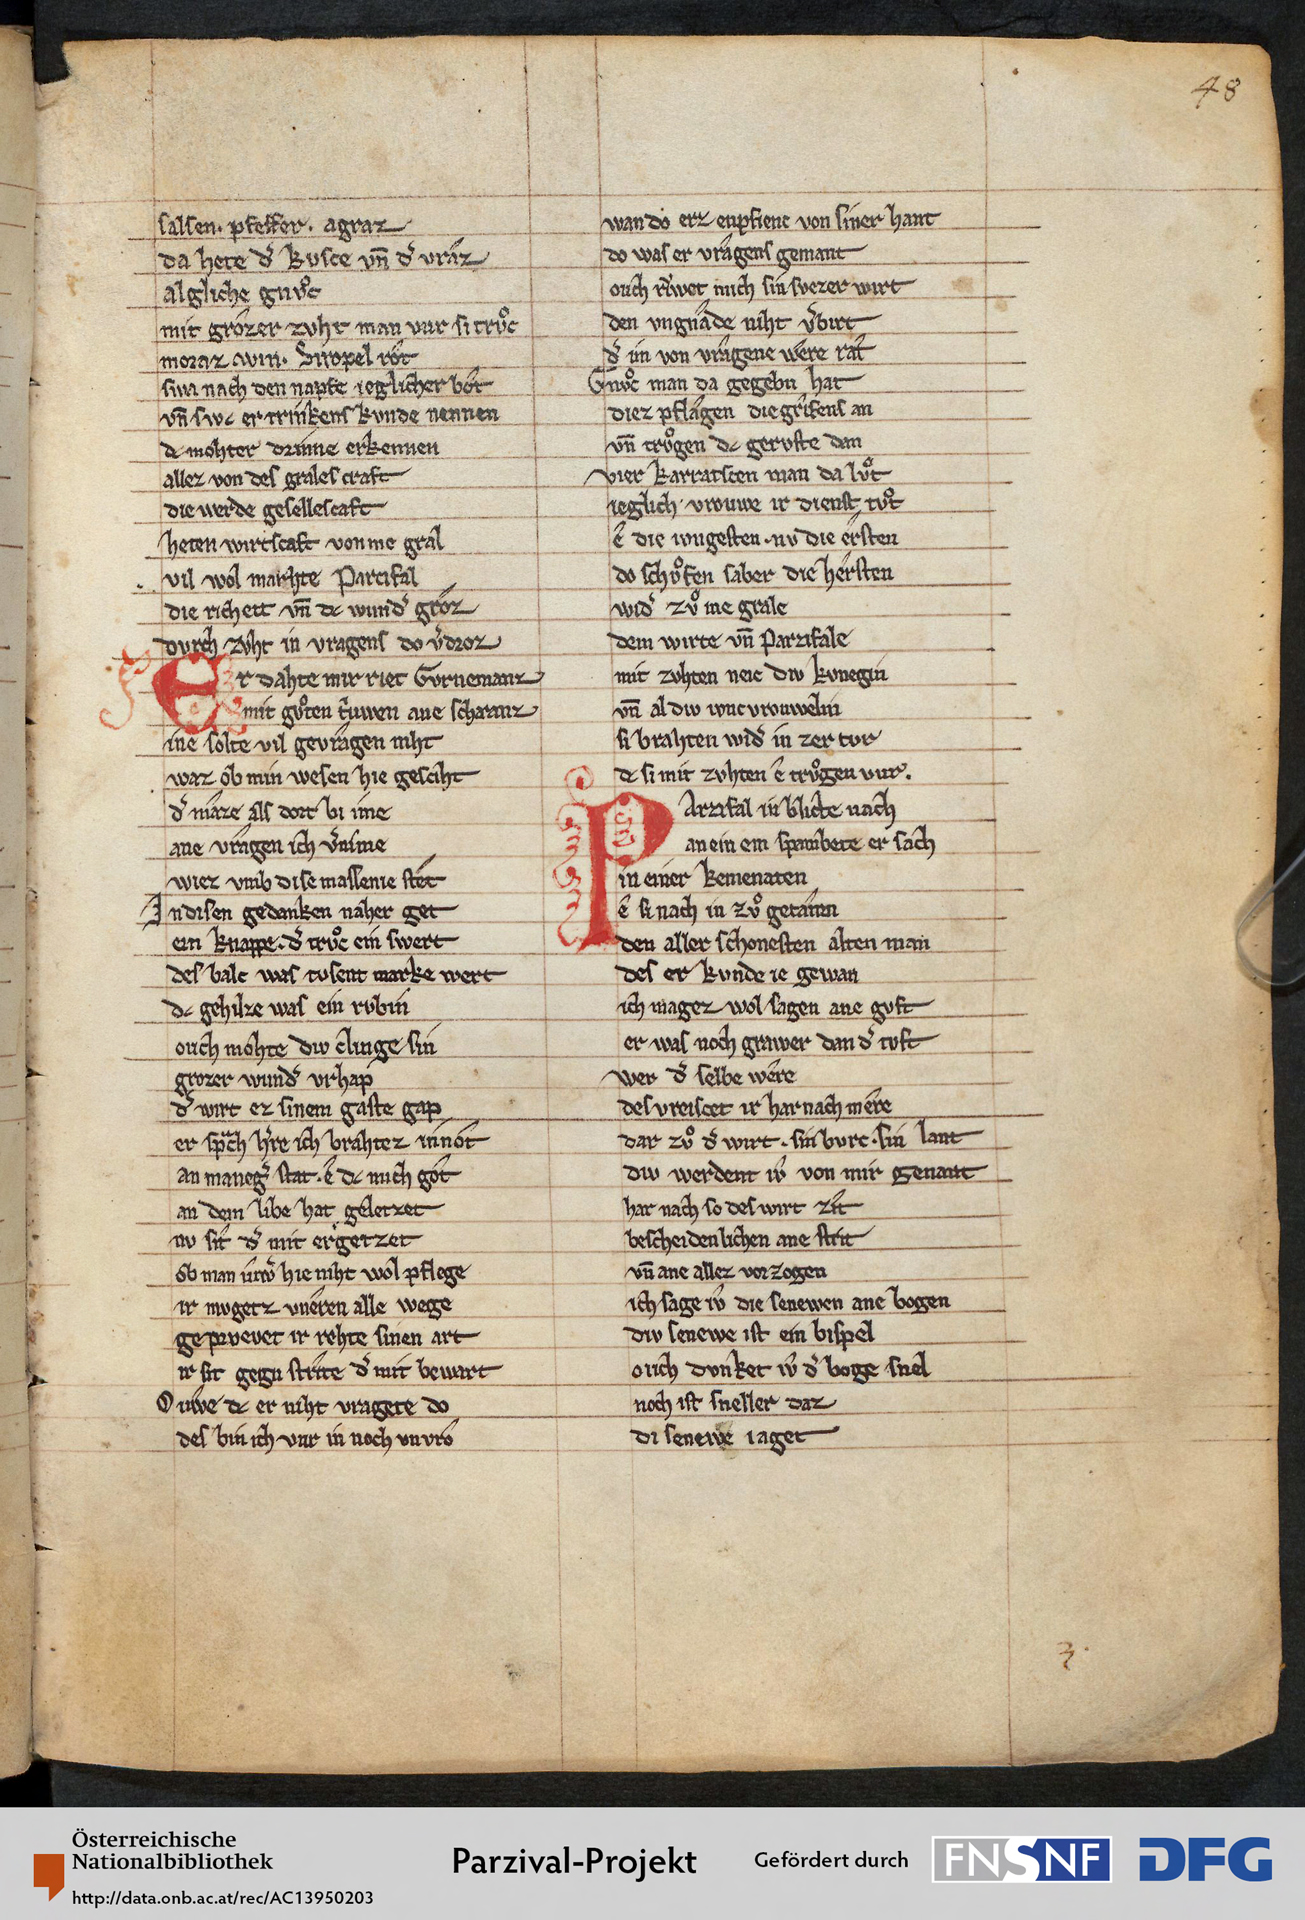 48
salsen. pfeffer. agraz
da hete dˢ kusce vn̄ dˢ vráz
al gliche gnuͦc
mit grôzer zuht man vur si truͦc
moraz win. Siropel rôt
swa nach den napfe ieglicher bôt
vn̄ swc er trinkens kunde nennen
dc mohter drinne erkennen
allez von des grales craft
die werde gesellescaft
heten wirtscaft vonme gral
vil wol marhte Parcifal
die richeit vn̄ dc wundˢ grôz
durch zuht in vragens do vˢdroz
Er dahte mir riet Gurnemanz
mit guͦten truwen ane schranz
ine solte vil gevragen niht
waz ob min wesen hie gesciht
dˢ maze als dort bi ime
ane vragen ich vˢnime
wiez vmb dise massenie stêt
In disen gedanken naher get
ein knappe. dˢ truͦc ein swert
des balc was tusent marke wert
dc gehilze was ein rubin
ouch mohte diu clinge sin
grozer wundˢ urhap
dˢ wirt ez sinem gaste gap
er sprach hˢre ich brahtez in nôt
an manegˢ stat. ê dc mich got
an dem libe hat geletzet
nu sit dˢ mit ergetzet
ob man iuwˢ hie niht wol pflege
ir mugetz vueren alle wege
ge pruevet ir rehte sinen art
ir sit gegn strîte dˢ mit bewart
Ouwe dc er niht vragete do
des bin ich vur in noch unvro
wan do erz enpfienc von siner hant
do was er vragens gemant
ouch rˢwet mich sin suezer wirt
den ungnade niht vˢbirt
dˢ im von vragene were rat
Gnuͦc man da gegebn hat
diez pflagen die grifens an
vn̄ truͦgen dc geruste dan
vier karratscen man da luͦt
ieglich vrouwe ir dienst tuͦt
ê die iungesten. nu die êrsten
do schuͦfen saber die hêrsten
widˢ zuͦ me grale
dem wirte vn̄ Parzifale
mit zuhten neic diu kunegin
vn̄ al diu iuncvrouwelin
si brahten widˢ in zer tur
dc si mit zuhten ê truͦgen vur.
Parzifal in blicte nach
an ein em spanbete er sach
in einer kemenaten
ê si nach in zuͦ getâten
den aller schonesten alten man
des er kunde ie gewan
ich magez wol sagen ane guft
er was noch grawer dan dˢ tuft
wer dˢ selbe wêre
des vreiscet ir har nach mêre
dar zuͦ dˢ wirt. sin burc. sin lant
diu werdent iv̂ von mir genant
har nach so des wirt zît
bescheidenlichen ane strit
vn̄ ane allez vor zogen
ich sage iv̂ die senewen ane bogen
diu senewe ist ein bispel
ouch dunket iv̂ dˢ boge snel
noch ist sneller daz
di senewe iaget
Österreichische
Nationalbibliothek
http://data.onb.ac.at/rec/AC13950203
Parzival-Projekt
Gefördert durch
FNSNF
DFG